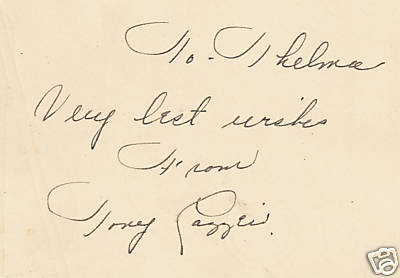 To - Thelma
Very best wishes
From
Tony Lazzeri.
ebay